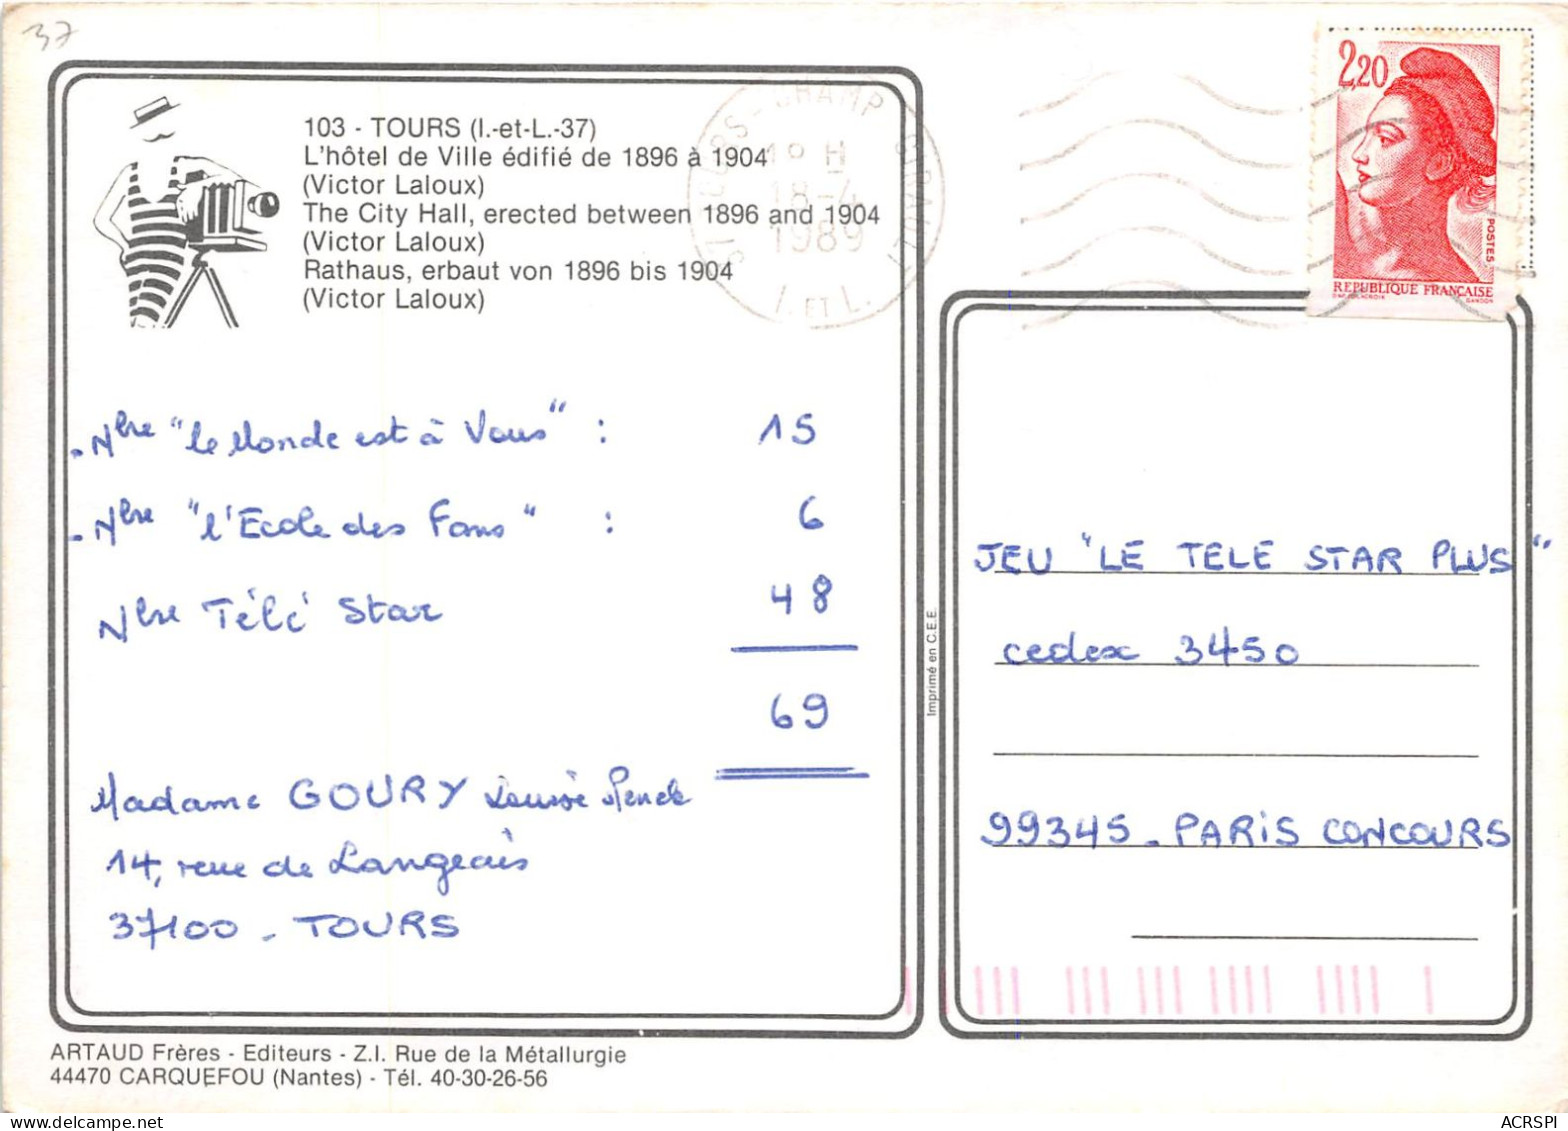 37
103 - TOURS (I.-et-L.-37)
L'hôtel de Ville édifié de 1896 à 1904
(Victor Laloux)
The City Hall, erected between 1896 and 1904
(Victor Laloux)
Rathaus, erbaut von 1896 bis 1904
(Victor Laloux)
18 H
18-4
1989
I. ET L.
2,20
POSTES
REPUBLIQUE FRANÇAISE
GANDON
- Nbre "le Monde est à Vous" : 15
- Nbre "l'Ecole des Fans" : 6
Nbre Télé Star 48
69
Madame GOURY
14, rue de Langeais
37100 - TOURS
Imprimé en C.E.E.
JEU "LE TELE STAR PLUS"
cedex 3450
99345 - PARIS CONCOURS
ARTAUD Frères - Editeurs - Z.I. Rue de la Métallurgie
44470 CARQUEFOU (Nantes) - Tél. 40-30-26-56
ACRSPI